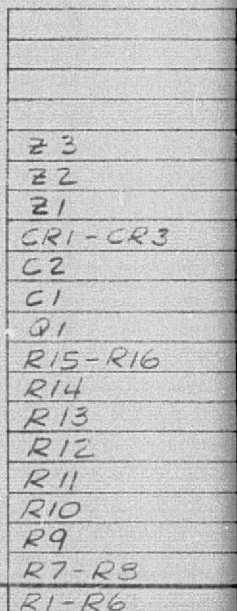 Z3
Z2
Z1
CR1-CR3
C2
C1
Q1
R15-R16
R14
R13
R12
R11
R10
R9
R7-R8
R1-R6